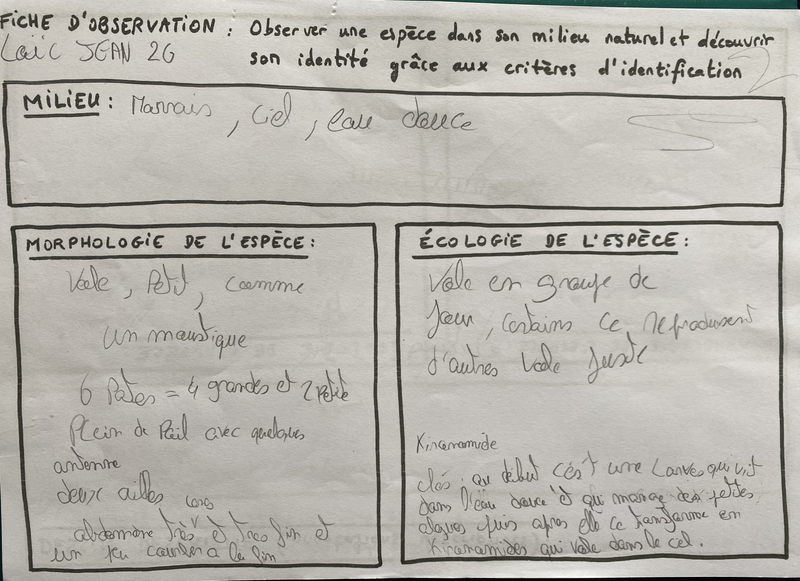 FICHE D'OBSERVATION : Observer une espèce dans son milieu naturel et découvrir
Laïc JEAN 2G son identité grâce aux critères d'identification
MILIEU : Marrais, ciel, eau douce
MORPHOLOGIE DE L'ESPÈCE :
Vole, Petit, comme
un moustique
6 Pates = 4 grandes et 2 Petite
Plein de Poil avec quelques
antenne
deux ailles
abdomène très et tres fin et
un peu courber a la fin
ÉCOLOGIE DE L'ESPÈCE :
Vole en groupe de
Jour, Certains ce reproduisent
d'autres Vole Juste
Kironamide
clés : au début cést une Larve qui vit
dans l'eau douce et qui mange des petites
algues puis apres elle ce transforme en
Kironamides qui vole dans le cel.